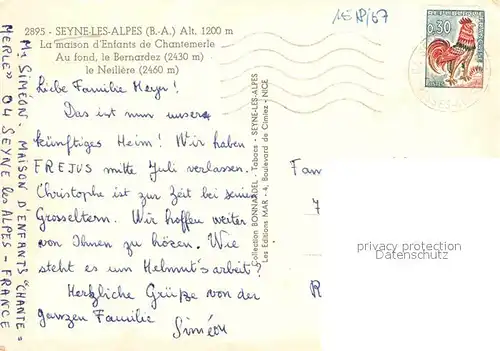 2895 - SEYNE-LES-ALPES (B.-A.) Alt. 1200 m
La maison d'Enfants de Chantemerle
Au fond, le Bernardez (2430 m)
le Neilière (2460 m)
1518/67
0,30
Liebe Familie Meyer!
Das ist nun unser
künftiges Heim! Wir haben
FREJUS mitte Juli verlassen.
Christophe ist zur Zeit bei seinen
Grosseltern. Wir hoffen weiter
von Ihnen zu hören. Wie
steht es um Helmut's arbeit?
Herzliche Grüße von der
ganzen Familie
Siméon
Mr SIMÉON. MAISON D'ENFANTS "CHANTE=
MERLE" 04 SEYNE les ALPES - FRANCE
Collection BONNARDEL - Tabacs - SEYNE-LES-ALPES
Les Editions MAR - 4, Boulevard de Cimiez - NICE
Fam
privacy protection
Datenschutz